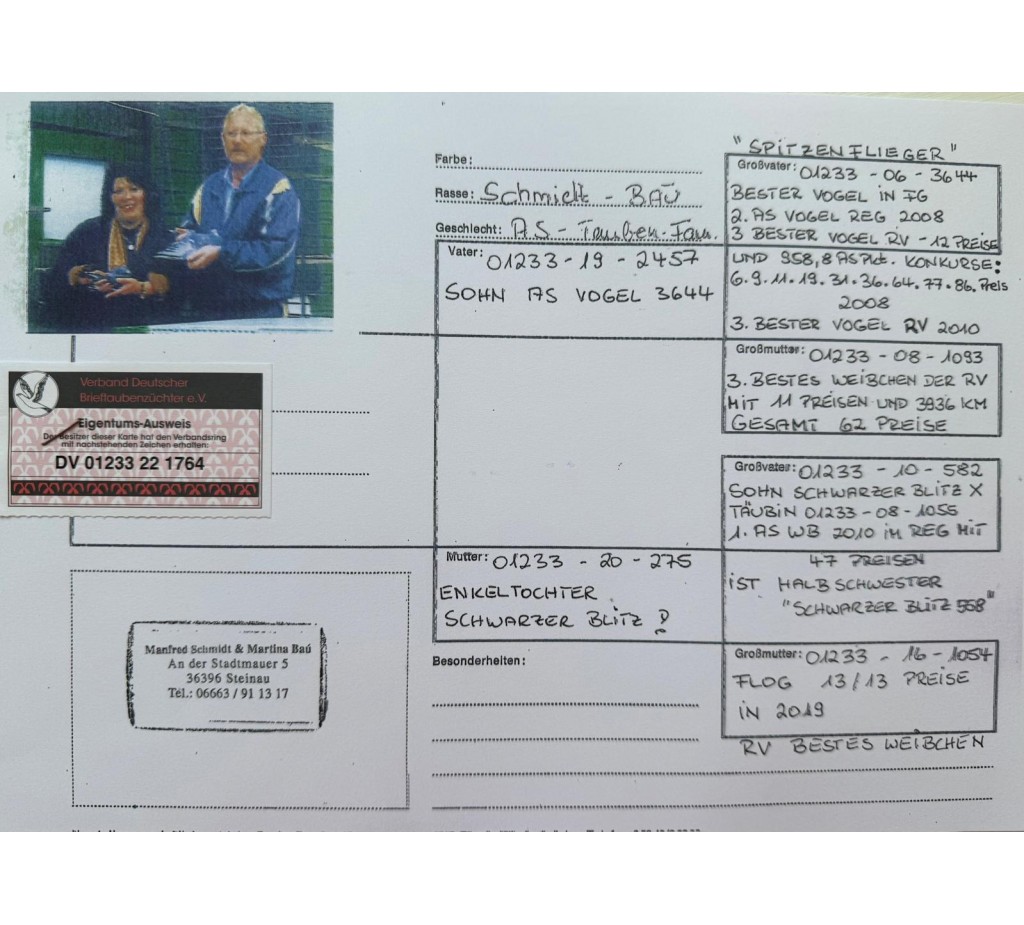 Verband Deutscher
Brieftaubenzüchter e.V.
Eigentums-Ausweis
Der Besitzer dieser Karte hat den Verbandsring
mit nachstehenden Zeichen erhalten:
DV 01233 22 1764
Manfred Schmidt & Martina Baú
An der Stadtmauer 5
36396 Steinau
Tel.: 06663 / 91 13 17
Farbe:
Rasse: Schmidt - BAÚ
Geschlecht: AS - Tauben - Fam.
Vater: 01233 - 19 - 2457
SOHN AS VOGEL 3644
Mutter: 01233 - 20 - 275
ENKELTOCHTER
SCHWARZER BLITZ !
Besonderheiten:
"SPITZENFLIEGER"
Großvater: 01233 - 06 - 3644
BESTER VOGEL IN FG
2. AS VOGEL REG 2008
3 BESTER VOGEL RV - 12 PREISE
UND 958,8 AS Pkt. KONKURSE:
6. 9. 11. 19. 31. 36. 64. 77. 86. Preis
2008
3. BESTER VOGEL RV 2010
Großmutter: 01233 - 08 - 1093
3. BESTES WEIBCHEN DER RV
MIT 11 PREISEN UND 3936 KM
GESAMT 62 PREISE
Großvater: 01233 - 10 - 582
SOHN SCHWARZER BLITZ X
TÄUBIN 01233 - 08 - 1055
1. AS WB 2010 IM REG MIT
47 PREISEN
IST HALBSCHWESTER
"SCHWARZER BLITZ 558"
Großmutter: 01233 - 16 - 1054
FLOG 13/13 PREISE
IN 2019
RV BESTES WEIBCHEN